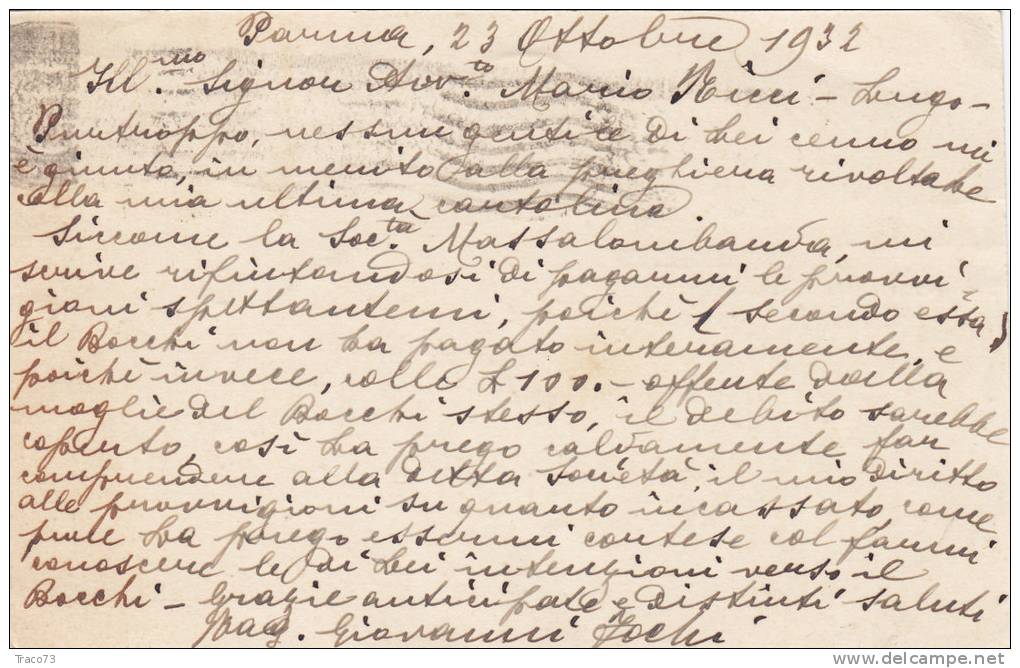 Parma, 23 Ottobre 1932
Ill.mo Signor Avv.to Mario Ricci - Lugo -
Purtroppo, nessun gentile di Lei cenno mi
è giunto, in merito alla preghiera rivoltale
colla mia ultima cartolina.
Siccome la Soc.tà Massalombarda, mi
scrive rifiutandosi di pagarmi le provvi=
gioni spettantemi, poichè (secondo essa)
il Bocchi non ha pagato interamente, e
poichè invece, colle £ 100.- offerte dalla
moglie del Bocchi stesso, il debito sarebbe
coperto, così La prego caldamente far
comprendere alla detta società, il mio diritto
alle provvigioni su quanto incassato, come
pure La prego essermi cortese col farmi
conoscere le di Lei intenzioni verso il
Bocchi - Grazie anticipate e distinti saluti
Rag. Giovanni
Traco73
www.delcampe.net